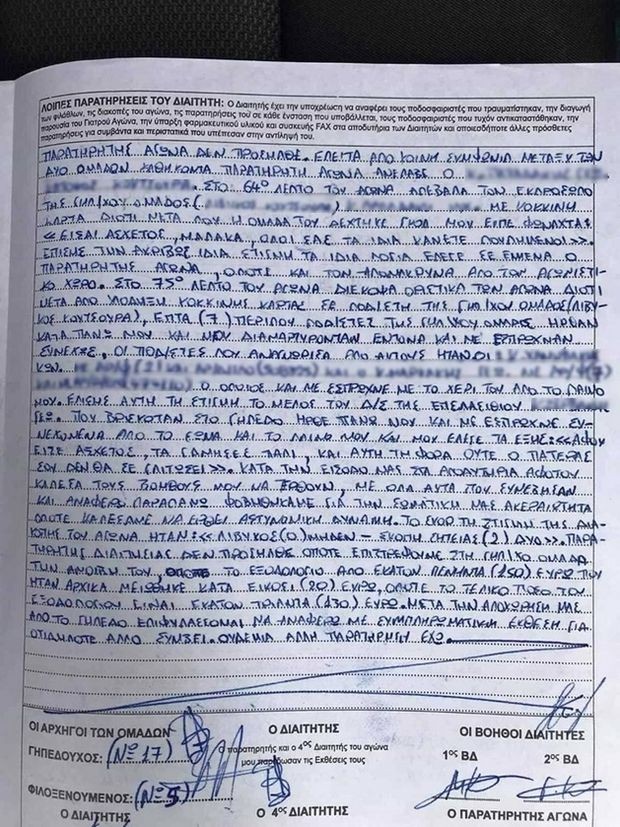 ΛΟΙΠΕΣ ΠΑΡΑΤΗΡΗΣΕΙΣ ΤΟΥ ΔΙΑΙΤΗΤΗ: Ο Διαιτητής έχει την υποχρέωση να αναφέρει τους ποδοσφαιριστές που τραυματίστηκαν, την διαγωγή
των φιλάθλων, τις διακοπές του αγώνα, τις παρατηρήσεις του σε κάθε ένσταση που υποβάλλεται, τους ποδοσφαιριστές που τυχόν αντικαταστάθηκαν, την
παρουσία του Γιατρού Αγώνα, την ύπαρξη φαρμακευτικού υλικού και συσκευής FAX στα αποδυτήρια των Διαιτητών και οποιεσδήποτε άλλες πρόσθετες
παρατηρήσεις για συμβάντα και περιστατικά που υπέπεσαν στην αντίληψή του.
ΠΑΡΑΤΗΡΗΤΗΣ ΑΓΩΝΑ ΔΕΝ ΠΡΟΣΗΛΘΕ. ΕΠΕΙΤΑ ΑΠΟ ΚΟΙΝΗ ΣΥΜΦΩΝΙΑ ΜΕΤΑΞΥ ΤΩΝ
ΔΥΟ ΟΜΑΔΩΝ ΚΑΘΗΚΟΝΤΑ ΠΑΡΑΤΗΡΗΤΗ ΑΓΩΝΑ ΑΝΕΛΑΒΕ Ο
ΣΤΟ 64º ΛΕΠΤΟ ΤΟΥ ΑΓΩΝΑ ΑΠΕΒΑΛΑ ΤΟΝ ΕΚΠΡΟΣΩΠΟ
ΤΗΣ ΓΗΠ/ΧΟΥ ΟΜΑΔΟΣ ( ΜΕ ΚΟΚΚΙΝΗ
ΚΑΡΤΑ ΔΙΟΤΙ ΜΕΤΑ ΠΟΥ Η ΟΜΑΔΑ ΤΟΥ ΔΕΧΤΗΚΕ ΓΚΟΛ ΜΟΥ ΕΙΠΕ ΦΩΝΑΧΤΑ
<<ΕΙΣΑΙ ΑΣΧΕΤΟΣ, ΜΑΛΑΚΑ, ΟΛΟΙ ΣΑΣ ΤΑ ΙΔΙΑ ΚΑΝΕΤΕ ΠΟΥΛΗΜΕΝΟΙ>>.
ΕΠΙΣΗΣ ΤΗΝ ΑΚΡΙΒΩΣ ΙΔΙΑ ΣΤΙΓΜΗ ΤΑ ΙΔΙΑ ΛΟΓΙΑ ΕΛΕΓΕ ΣΕ ΕΜΕΝΑ Ο
ΠΑΡΑΤΗΡΗΤΗΣ ΑΓΩΝΑ, ΟΠΟΤΕ ΚΑΙ ΤΟΝ ΑΠΟΜΑΚΡΥΝΑ ΑΠΟ ΤΟΝ ΑΓΩΝΙΣΤΙ-
ΚΟ ΧΩΡΟ. ΣΤΟ 75º ΛΕΠΤΟ ΤΟΥ ΑΓΩΝΑ ΔΙΕΚΟΨΑ ΟΡΙΣΤΙΚΑ ΤΟΝ ΑΓΩΝΑ ΔΙΟΤΙ
ΜΕΤΑ ΑΠΟ ΥΠΟΔΕΙΞΗ ΚΟΚΚΙΝΗΣ ΚΑΡΤΑΣ ΣΕ ΠΟΔ/ΣΤΗ ΤΗΣ ΓΗΠ/ΧΟΥ ΟΜΑΔΟΣ (ΛΙΒΥ-
ΚΟΣ ΚΟΥΤΣΟΥΡΑ), ΕΠΤΑ (7) ΠΕΡΙΠΟΥ ΠΟΔ/ΣΤΕΣ ΤΗΣ ΓΗΠ/ΧΟΥ ΟΜΑΔΟΣ ΗΡΘΑΝ
ΚΑΤΑ ΠΑΝΩ ΜΟΥ ΚΑΙ ΜΟΥ ΔΙΑΜΑΡΤΥΡΟΝΤΑΝ ΕΝΤΟΝΑ ΚΑΙ ΜΕ ΕΣΠΡΩΧΝΑΝ
ΣΥΝΕΧΩΣ. ΟΙ ΠΟΔ/ΣΤΕΣ ΠΟΥ ΑΝΑΓΝΩΡΙΣΑ ΑΠΟ ΑΥΤΟΥΣ ΗΤΑΝ ΟΙ
Ο ΟΠΟΙΟΣ ΚΑΙ ΜΕ ΕΣΠΡΩΧΝΕ ΜΕ ΤΟ ΧΕΡΙ ΤΟΥ ΑΠΟ ΤΟ ΛΑΙΜΟ
ΜΟΥ. ΕΠΙΣΗΣ ΑΥΤΗ ΤΗ ΣΤΙΓΜΗ ΤΟ ΜΕΛΟΣ ΤΟΥ Δ/Σ ΤΗΣ ΕΠΣ ΛΑΣΙΘΙΟΥ
ΠΟΥ ΒΡΙΣΚΟΤΑΝ ΣΤΟ ΓΗΠΕΔΟ ΗΡΘΕ ΠΑΝΩ ΜΟΥ ΚΑΙ ΜΕ ΕΣΠΡΩΧΝΕ ΣΥ-
ΝΕΧΟΜΕΝΑ ΑΠΟ ΤΟ ΣΩΜΑ ΚΑΙ ΤΟ ΛΑΙΜΟ ΜΟΥ ΚΑΙ ΜΟΥ ΕΛΕΓΕ ΤΑ ΕΞΗΣ: <<ΑΦΟΥ
ΕΙΣΕ ΑΣΧΕΤΟΣ, ΤΑ ΓΑΜΗΣΕΣ ΠΑΛΙ, ΚΑΙ ΑΥΤΗ ΤΗ ΦΟΡΑ ΟΥΤΕ Ο ΠΑΤΕΡΑΣ
ΣΟΥ ΔΕΝ ΘΑ ΣΕ ΓΛΙΤΩΣΕΙ>>. ΚΑΤΑ ΤΗΝ ΕΙΣΟΔΟ ΜΑΣ ΣΤΑ ΑΠΟΔΥΤΗΡΙΑ ΑΦΟΤΟΥ
ΚΑΛΕΣΑ ΤΟΥΣ ΒΟΗΘΟΥΣ ΜΟΥ ΝΑ ΕΡΘΟΥΝ, ΜΕ ΟΛΑ ΑΥΤΑ ΠΟΥ ΣΥΝΕΒΗΣΑΝ
ΚΑΙ ΑΝΑΦΕΡΩ ΠΑΡΑΠΑΝΩ ΦΟΒΗΘΗΚΑΜΕ ΓΙΑ ΤΗΝ ΣΩΜΑΤΙΚΗ ΜΑΣ ΑΚΕΡΑΙΟΤΗΤΑ
ΟΠΟΤΕ ΚΑΛΕΣΑΜΕ ΝΑ ΕΡΘΕΙ ΑΣΤΥΝΟΜΙΚΗ ΔΥΝΑΜΗ. ΤΟ ΣΚΟΡ ΤΗ ΣΤΙΓΜΗ ΤΗΣ ΔΙΑ-
ΚΟΠΗΣ ΤΟΥ ΑΓΩΝΑ ΗΤΑΝ: <<ΛΙΒΥΚΟΣ (0) ΜΗΔΕΝ - ΣΚΟΠΗ ΣΗΤΕΙΑΣ (2) ΔΥΟ>>. ΠΑΡΑ-
ΤΗΡΗΤΗΣ ΔΙΑΙΤΗΣΙΑΣ ΔΕΝ ΠΡΟΣΗΛΘΕ ΟΠΟΤΕ ΕΠΙΣΤΡΕΨΟΥΜΕ ΣΤΗ ΓΗΠ/ΧΟ ΟΜΑΔΑ
ΤΗΝ ΑΜΟΙΒΗ ΤΟΥ, ΤΟ ΕΞΟΔΟΛΟΓΙΟ ΑΠΟ ΕΚΑΤΟΝ ΠΕΝΗΝΤΑ (150) ΕΥΡΩ ΠΟΥ
ΗΤΑΝ ΑΡΧΙΚΑ ΜΕΙΩΘΗΚΕ ΚΑΤΑ ΕΙΚΟΣΙ (20) ΕΥΡΩ, ΟΠΟΤΕ ΤΟ ΤΕΛΙΚΟ ΠΟΣΟ ΤΟΥ
ΕΞΟΔΟΛΟΓΙΟΥ ΕΙΝΑΙ ΕΚΑΤΟΝ ΤΡΙΑΝΤΑ (130) ΕΥΡΩ. ΜΕΤΑ ΤΗΝ ΑΠΟΧΩΡΗΣΗ ΜΑΣ
ΑΠΟ ΤΟ ΓΗΠΕΔΟ ΕΠΙΦΥΛΑΣΣΟΜΑΙ ΝΑ ΑΝΑΦΕΡΩ ΜΕ ΣΥΜΠΛΗΡΩΜΑΤΙΚΗ ΕΚΘΕΣΗ ΓΙΑ
ΟΤΙΔΗΠΟΤΕ ΑΛΛΟ ΣΥΜΒΕΙ. ΟΥΔΕΜΙΑ ΑΛΛΗ ΠΑΡΑΤΗΡΗΣΗ ΕΧΩ.
ΟΙ ΑΡΧΗΓΟΙ ΤΩΝ ΟΜΑΔΩΝ Ο ΔΙΑΙΤΗΤΗΣ ΟΙ ΒΟΗΘΟΙ ΔΙΑΙΤΗΤΕΣ
ΓΗΠΕΔΟΥΧΟΣ: (Νº 17) Ο παρατηρητής και ο 4ος Διαιτητής του αγώνα 1ος ΒΔ 2ος ΒΔ
μου παρέδωσαν τις Εκθέσεις τους
ΦΙΛΟΞΕΝΟΥΜΕΝΟΣ: (Νº 5)
Ο ΔΙΑΙΤΗΤΗΣ Ο 4ος ΔΙΑΙΤΗΤΗΣ Ο ΠΑΡΑΤΗΡΗΤΗΣ ΑΓΩΝΑ